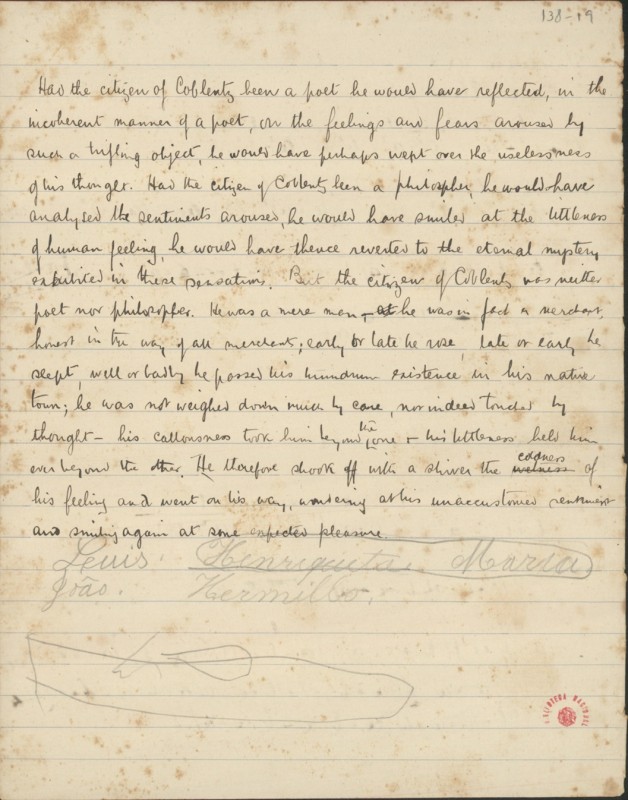 138-19
Had the citizen of Coblentz been a poet he would have reflected, in the
incoherent manner of a poet, on the feelings and fears aroused by
such a trifling object, he would have perhaps wept over the uselessness
of his thought. Had the citizen of Coblentz been a philosopher, he would have
analysed the sentiments aroused, he would have smiled at the littleness
of human feeling, he would have thence reverted to the eternal mystery
exhibited in these sensations. But the citizen of Coblentz was neither
poet nor philosopher. He was a mere man, he was in fact a merchant,
honest in the way of all merchants; early or late he rose, late or early he
slept, well or badly he passed his humdrum existence in his native
town; he was not weighed down much by care, nor indeed touched by
thought — his callousness took him beyond the one & his littleness held him
ever beyond the other. He therefore shook off with a shiver the coldness of
his feeling and went on his way, wondering at his unaccustomed sentiment
and smiling again at some expected pleasure.
Lewis Henriqueta Maria
João. Hermillo.
BIBLIOTECA NACIONAL